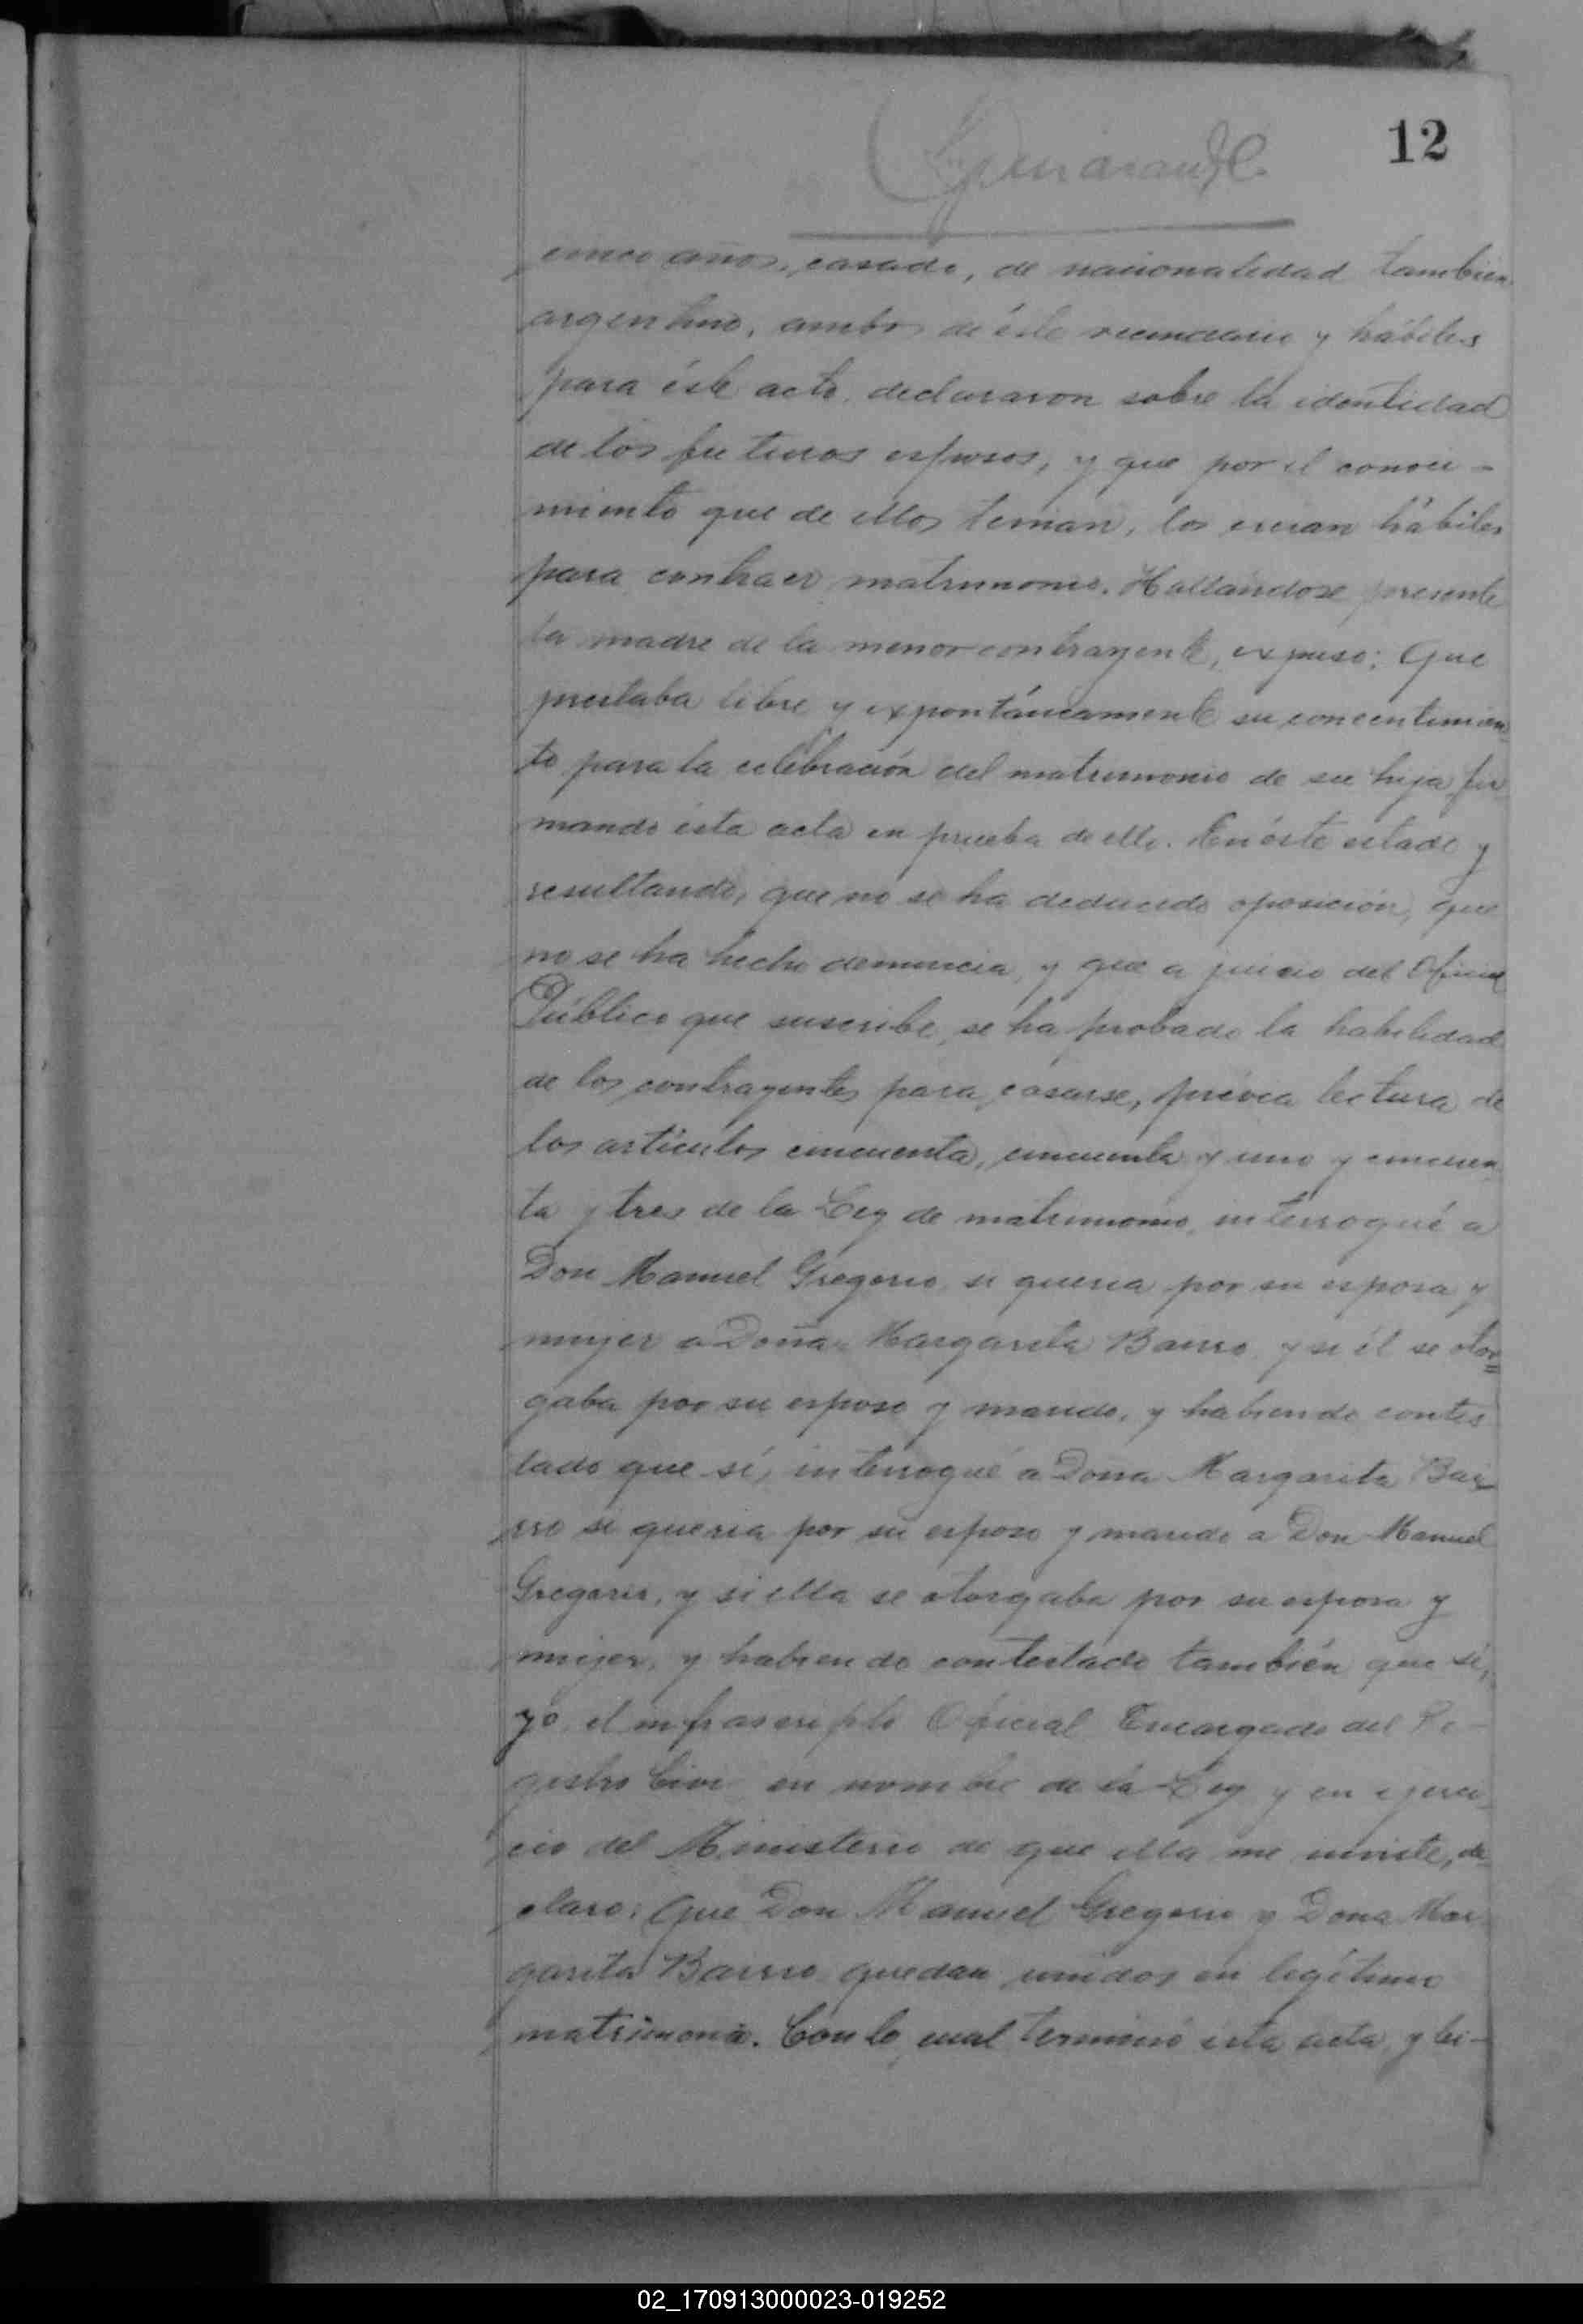 12
cinco años, casado, de nacionalidad también
argentino, ambos de éste vecindario y hábiles
para éste acto, declararon sobre la identidad
de los futuros esposos, y que por el conoci-
miento que de ellos tenian, los creian hábiles
para contraer matrimonio. Hallándose presente
la madre de la menor contrayente, expuso: Que
prestaba libre y expontáneamente su concentimien
to para la celebración del matrimonio de su hija fir
mando ésta acta en prueba de ello. En éste estado y
resultando, que no se ha deducido oposición, que
no se ha hecho denuncia, y que a juicio del Oficial
Público que suscribe, se ha probado la habilidad
de los contrayentes para casarse, prévia lectura de
los artículos cincuenta, cincuenta y uno y cincuen
ta y tres de la Ley de matrimonio, interrogué a
Don Manuel Gregorio, si queria por su esposa y
mujer a Doña Margarita Barro y si él se otor=
gaba por su esposo y marido, y habiendo contes
tado que sí, interrogué a Doña Margarita Bar
rro si queria por su esposo y marido a Don Manuel
Gregorio, y si ella se otorgaba por su esposa y
mujer, y habiendo contestado también que sí,
yo, el infrascripto Oficial Encargado del Re-
gistro Civil en nombre de la Ley y en ejerci-
cio del Ministerio de que ella me inviste, de
claro: Que Don Manuel Gregorio y Doña Mar
garita Barro quedan unidos en legítimo
matrimonio. Con lo cual terminó ésta acta, y lei-
02_170913000023-019252